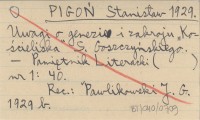 PIGOŃ Stanisław 1929.
Uwagi o genezie i zabroju "Ko-
ścieliska" S. Goszczyńskiego.
– Pamiętnik Literacki (      )
nr 1: 40.
Rec.: Pawlikowski J. G.
1929 b.